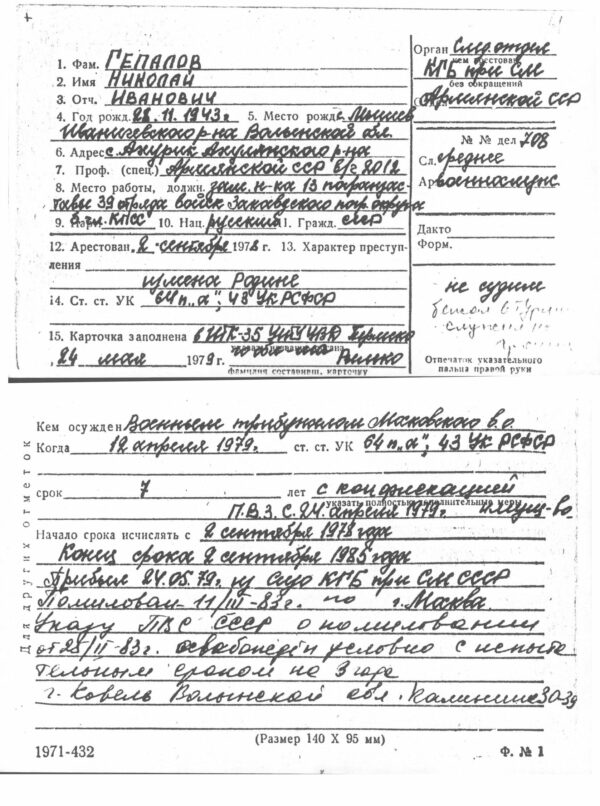 1. Фам. ГЕПАЛОВ
2. Имя НИКОЛАЙ
3. Отч. ИВАНОВИЧ
4. Год рожд. 28. 11. 1943г. 5. Место рожд.
Иваничевского р-на Волынской обл.
6. Адрес с. Ахурик Ахулянского р-на
7. Проф. (спец.) Армянской ССР в/ч 2012
8. Место работы, должн. зам. н-ка 13 погранзас-
тавы 39 отряда войск Закавдского погр. округа
9. Парт. б. чл. КПСС 10. Нац. русский 11. Гражд. СССР
12. Арестован 2 сентября 1978 г. 13. Характер преступ-
ления
измена Родине
14. Ст. ст. УК 64 п. „а", 43 УК РСФСР
15. Карточка заполнена в ИТК-35
24 мая 1979 г.
фамилия составивш. карточку
Орган След отдел
кем арестован
КГБ при См
без сокращений
Армянской ССР
№ № дел 708
среднее
военнослуж.
Дакто
Форм.
не судим
бежал в
служил
Отпечаток указательного
пальца правой руки
Для других отметок
Кем осужден Военным трибуналом Московского в.о.
Когда 12 апреля 1979г. ст. ст. УК 64 п „а", 43 УК РСФСР
срок 7 лет с конфискацией
указать полностью дополнительные меры
П.В.З.С. 24 апреля 1979г. имущ-ва
Начало срока исчислять с 2 сентября 1978 года
Конец срока 2 сентября 1985 года
Прибыл 24.05.79г. из СИЗО КГБ при См СССР
Помилован - 11/III - 83г. по г. Москва.
Указу ПВС СССР о помиловании
от 25/II - 83г. освобожден условно с испыта
тельным сроком на 3 года
г. Ковель Волынской обл. Калинина 30-39
(Размер 140 Х 95 мм)
1971-432 Ф. № 1